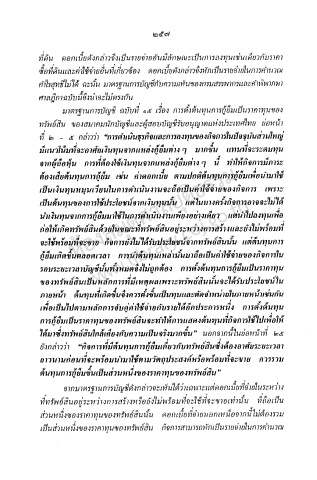 ๒๕๗
ที่ดิน ดอกเบี้ยดังกล่าวจึงเป็นรายจ่ายอันมีลักษณะเป็นการลงทุนเช่นเดียวกับราคา
ซื้อที่ดินและค่าใช้จ่ายอื่นที่เกี่ยวข้อง ดอกเบี้ยดังกล่าวจึงหักเป็นรายจ่ายในการคำนวณ
กำไรสุทธิไม่ได้ ฉะนั้น มาตรฐานการบัญชีกับความเห็นของกรมสรรพากรและคำพิพากษา
ศาลฎีกาฉบับนี้จึงน่าจะไม่ตรงกัน
มาตรฐานการบัญชี ฉบับที่ ๑๙ เรื่อง การตั้งต้นทุนการกู้ยืมเป็นราคาทุนของ
ทรัพย์สิน ของสมาคมนักบัญชีและผู้สอบบัญชีรับอนุญาตแห่งประเทศไทย ข้อหน้า
ที่ ๒ - ๕ กล่าวว่า "การดำเนินธุรกิจและการลงทุนของกิจการในปัจจุบันส่วนใหญ่
มีแนวโน้มที่จะอาศัยเงินทุนจากแหล่งกู้ยืมต่าง ๆ มากขึ้น แทนที่จะระดมทุน
จากผู้ถือหุ้น การที่ต้องใช้เงินทุนจากแหล่งกู้ยืมต่าง ๆ นี้ ทำให้กิจการมีภาระ
ต้องเสียต้นทุนการกู้ยืม เช่น ค่าดอกเบี้ย ตามปกติต้นทุนการกู้ยืมเพื่อนำมาใช้
เป็นเงินทุนหมุนเวียนในการดำเนินงานจะถือเป็นค่าใช้จ่ายของกิจการ เพราะ
เป็นต้นทุนของการใช้ประโยชน์จากเงินทุนนั้น แต่ในบางครั้งกิจการอาจจะไม่ได้
นำเงินทุนจากการกู้ยืมมาใช้ในการดำเนินงานเพียงอย่างเดียว แต่นำไปลงทุนเพื่อ
ก่อให้เกิดทรัพย์สินด้วยในขณะที่ทรัพย์สินอยู่ระหว่างการสร้างและยังไม่พร้อมที่
จะใช้หรือพร้อมที่จะขาย กิจการยังไม่ได้รับประโยชน์จากทรัพย์สินนั้น แต่ต้นทุนการ
กู้ยืมเกิดขึ้นตลอดเวลา การนำต้นทุนเหล่านั้นมาถือเป็นค่าใช้จ่ายของกิจการใน
รอบระยะเวลาบัญชีนั้นทั้งหมดจึงไม่ถูกต้อง การตั้งต้นทุนการกู้ยืมเป็นราคาทุน
ของทรัพย์สินเป็นหลักการที่มีเหตุผลเพราะทรัพย์สินนั้นจะได้รับประโยชน์ใน
ภายหน้า ต้นทุนที่เกิดขึ้นจึงควรตั้งขึ้นเป็นทุนและตัดจำหน่ายในภายหน้าเช่นกัน
เพื่อเป็นไปตามหลักการจับคู่ค่าใช้จ่ายกับรายได้อีกประการหนึ่ง การตั้งต้นทุน
การกู้ยืมเป็นราคาทุนของทรัพย์สินจะทำให้การแสดงต้นทุนที่กิจการใช้ไปเพื่อให้
ได้มาซึ่งทรัพย์สินใกล้เคียงกับความเป็นจริงมากขึ้น" นอกจากนี้ในย่อหน้าที่ ๒๕
ยังกล่าวว่า "กิจการที่มีต้นทุนการกู้ยืมเกี่ยวกับทรัพย์สินซึ่งต้องอาศัยระยะเวลา
ยาวนานก่อนที่จะพร้อมนำมาใช้ตามวัตถุประสงค์หรือพร้อมที่จะขาย ควรรวม
ต้นทุนการกู้ยืมขึ้นเป็นส่วนหนึ่งของราคาทุนของทรัพย์สิน"
จากมาตรฐานการบัญชีดังกล่าวจะเห็นได้ว่าเฉพาะแต่ดอกเบี้ยที่จ่ายในระหว่าง
ที่ทรัพย์สินอยู่ระหว่างการสร้างหรือยังไม่พร้อมที่จะใช้ที่จะขายเท่านั้น ที่ถือเป็น
ส่วนหนึ่งของราคาทุนของทรัพย์สินนั้น ดอกเบี้ยที่จ่ายนอกเหนือจากนี้ไม่ต้องรวม
เป็นส่วนหนึ่งของราคาทุนของทรัพย์สิน กิจการสามารถหักเป็นรายจ่ายในการคำนวณ